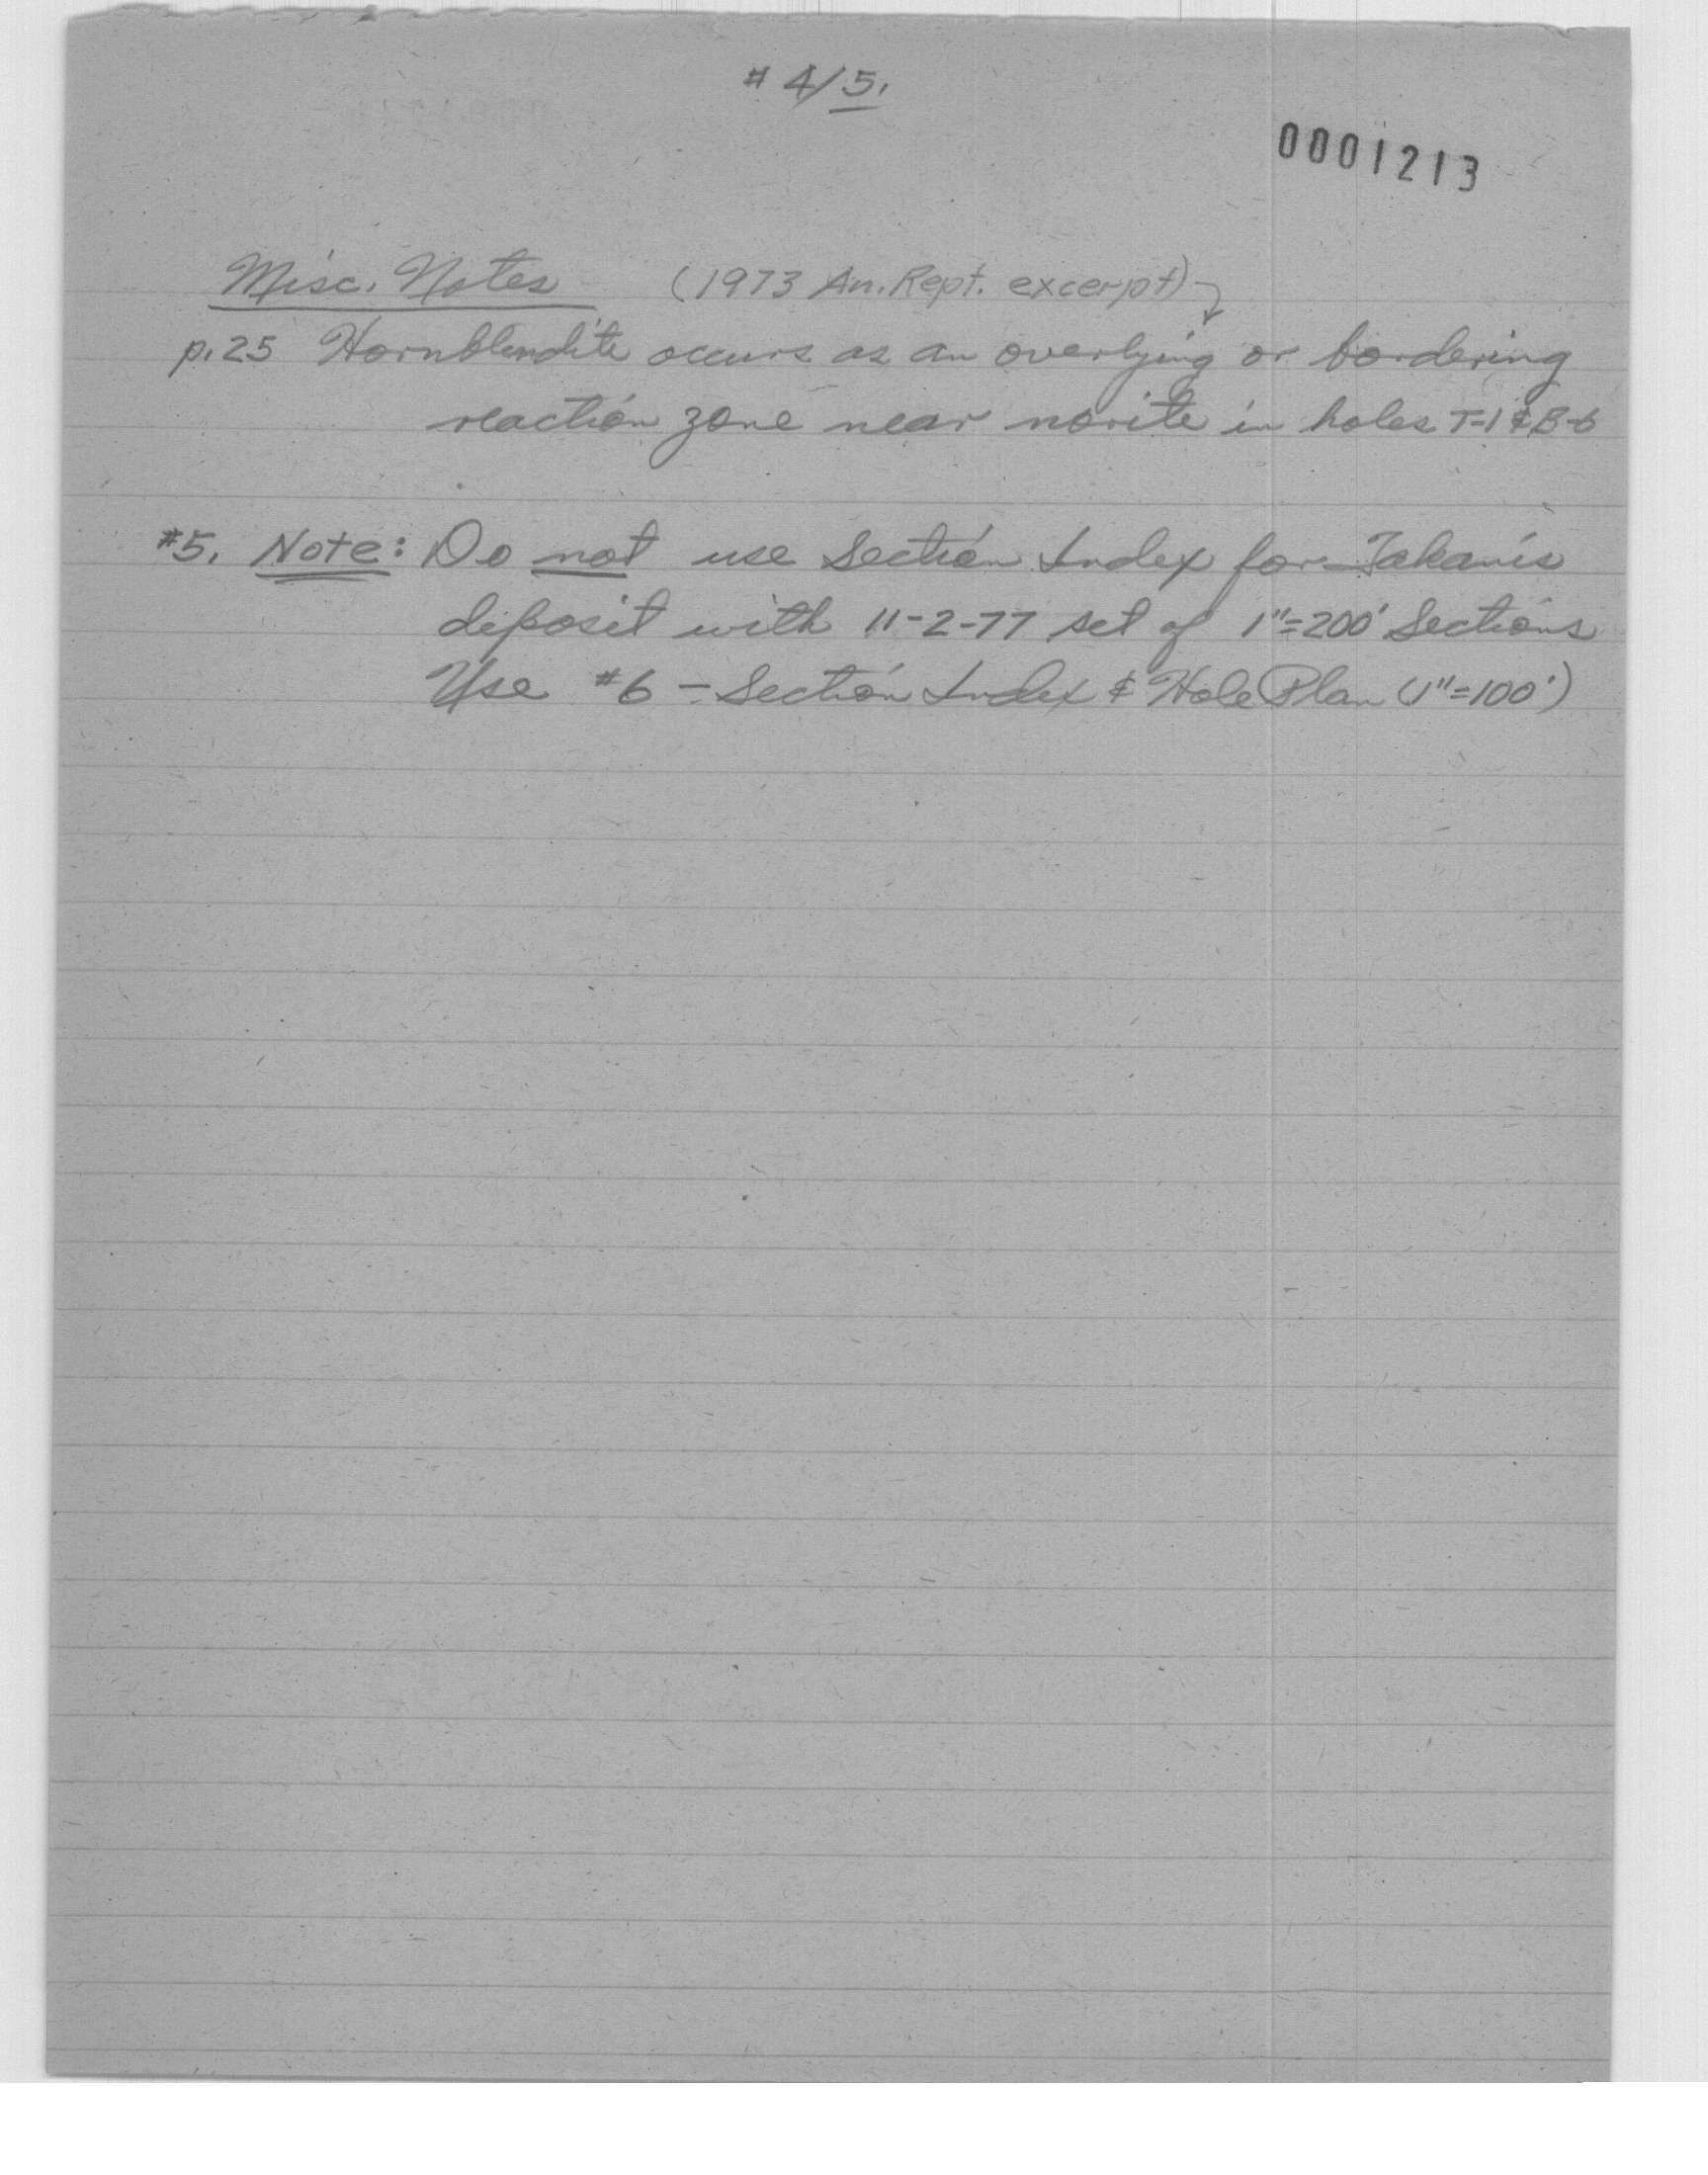 # 4/5.
0001213
Misc. Notes (1973 An. Rept. excerpt)
p. 25 Hornblendite occurs as an overlying or bordering
reaction zone near norite in holes T-1 & B-6
#5. Note: Do not use Section Index for Takanis
deposit with 11-2-77 set of 1"=200' Sections
Use #6 - Section Index & Hole Plan (1"=100')